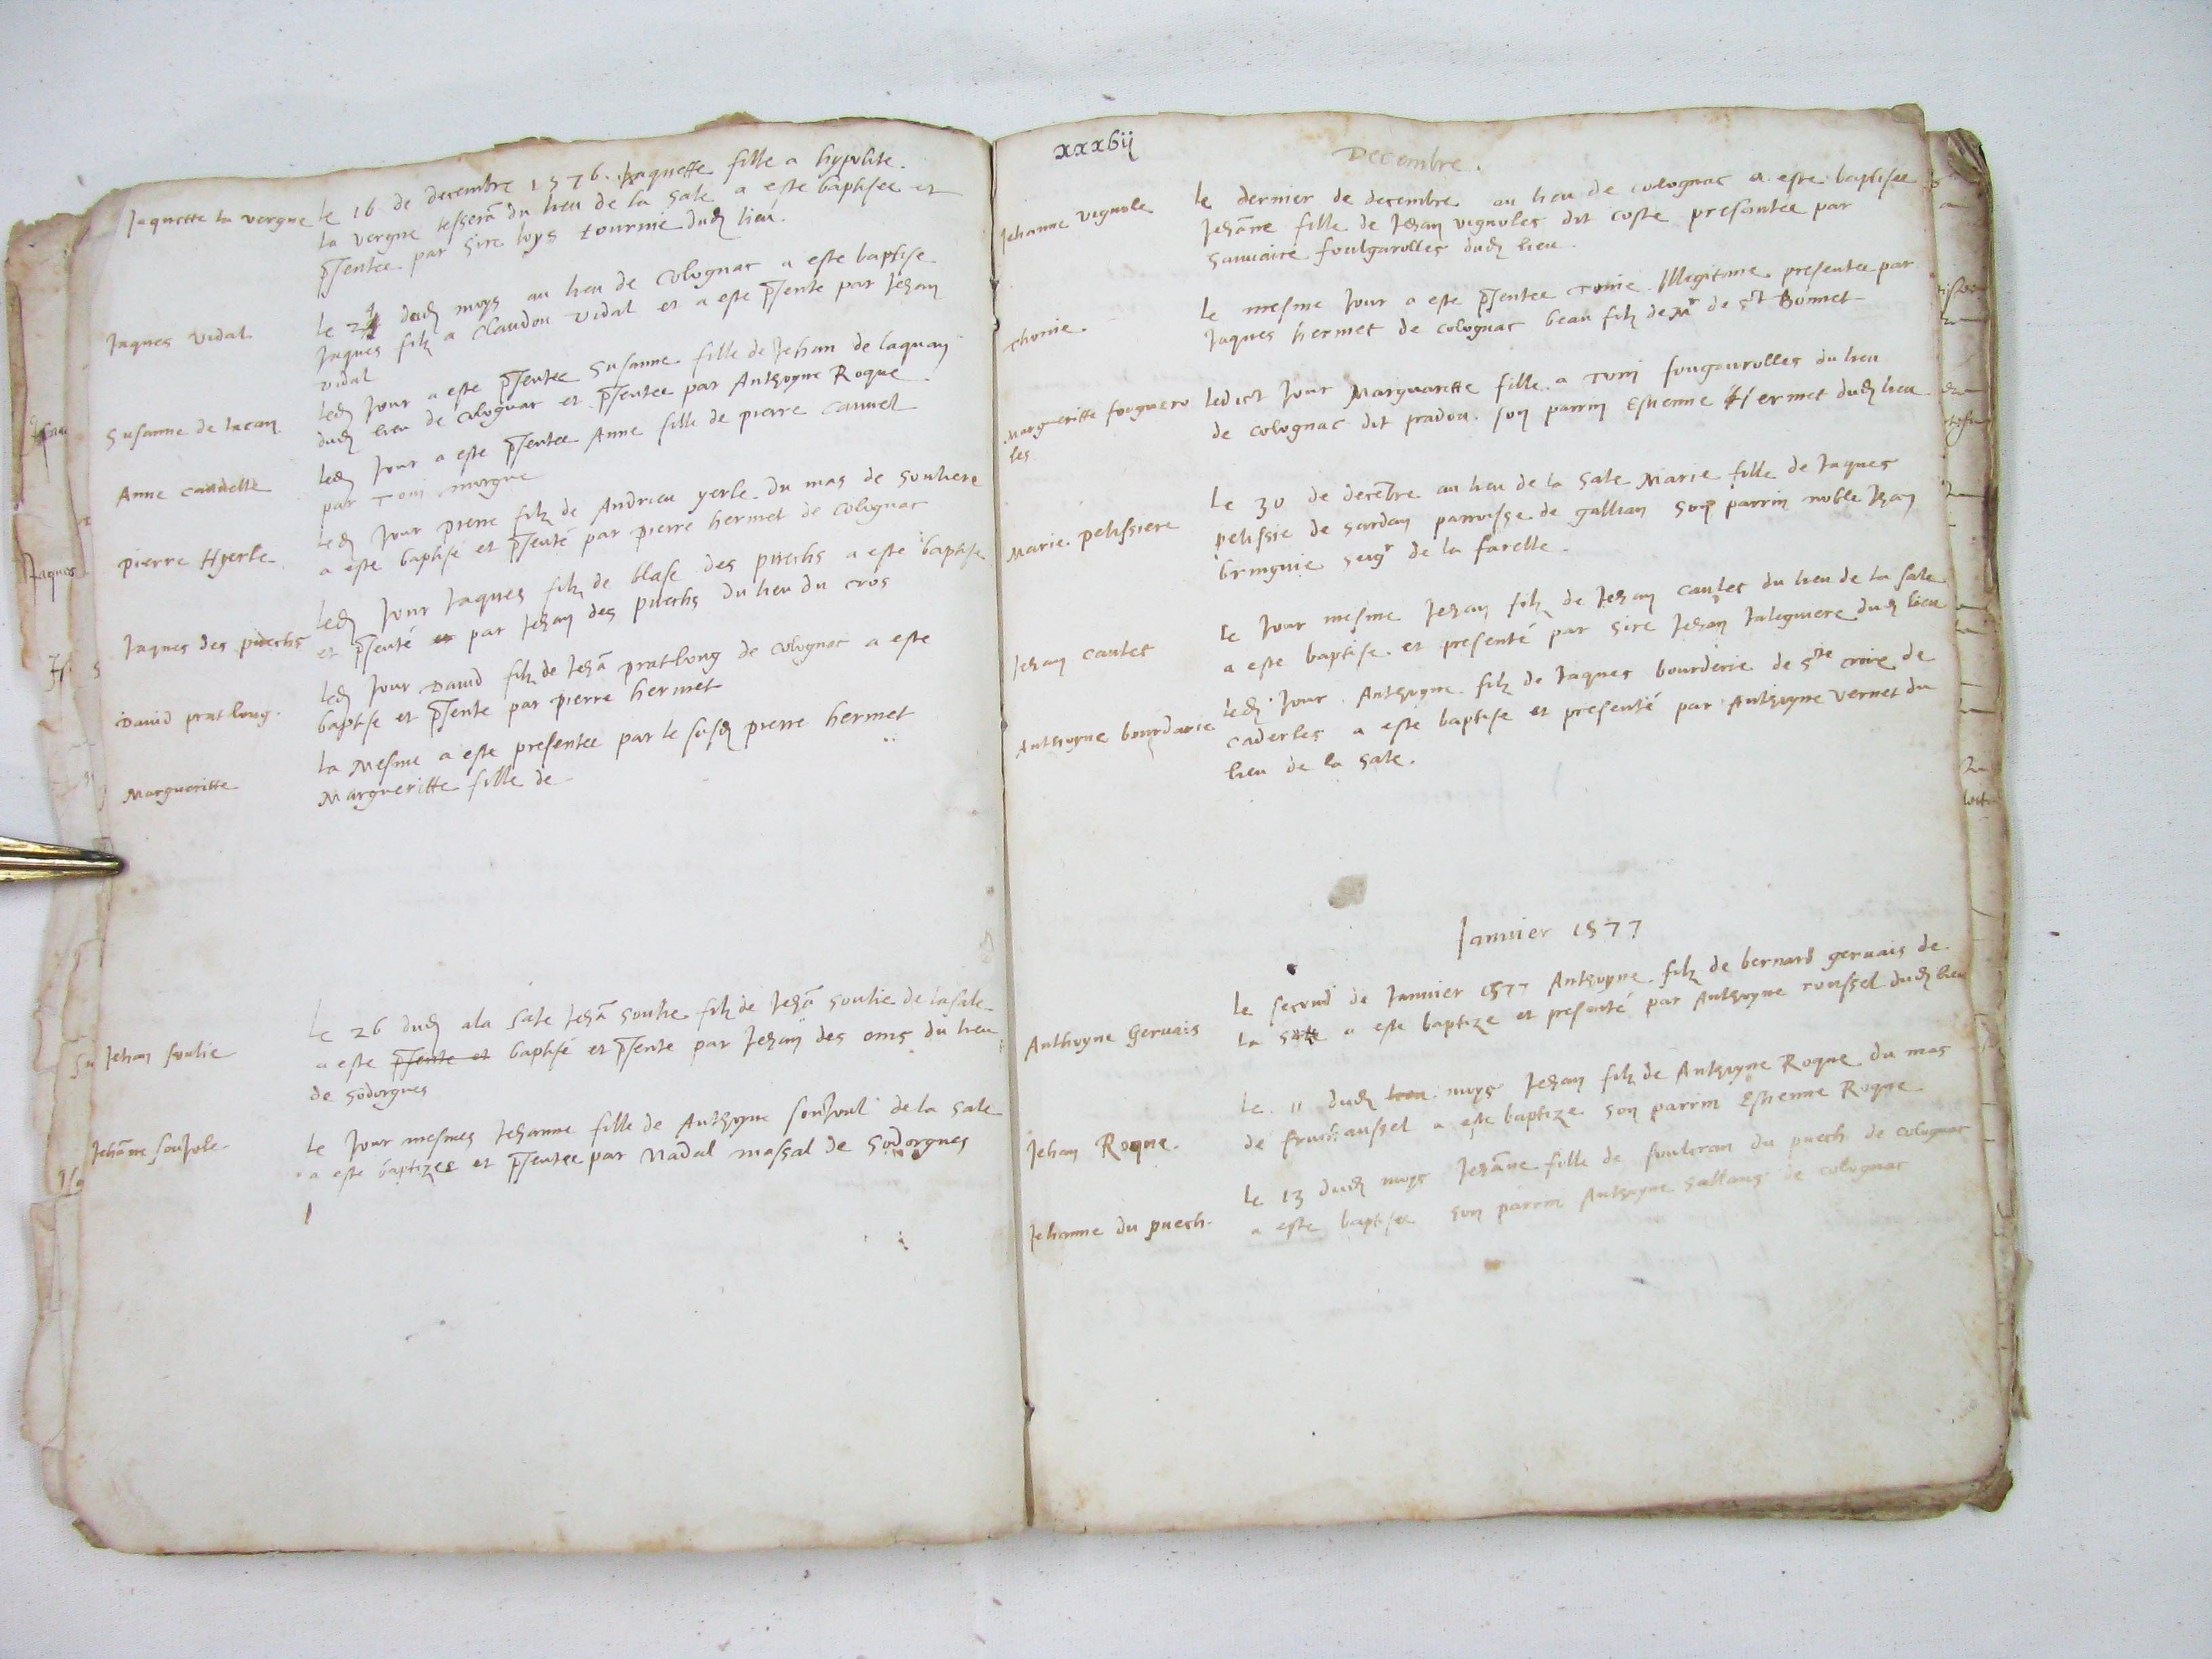 Jaquette la vergne
le 16 de decembre 1576. Jaquette fille a hypolite
la vergne tesserā du lieu de la Sale a este baptisee et
p̄sentee par sire loys tournie dud lieu.
Jaques vidal
le 24 dud moys au lieu de Colognac a este baptise
Jaques filz a Claudou vidal et a este p̄sente par Jehan
vidal
Susanne de lacan
led Jour a este p̄sentee Susanne fille de Jehan de laquan
dud lieu de Colognac et p̄sentee par Anthoyne Roque
Anne cauuelle
led Jour a este p̄sentee Anne fille de pierre cauuel
par Toni morgue
pierre Hyerle
led Jour pierre filz de Andrieu yerle du mas de souliere
a este baptisé et p̄senté par pierre hermet de Colognac
Jaques des puechs
led Jour Jaques filz de blase des puechs a este baptise
et p̄senté et par Jehan des puechs du lieu du cros
David pratlong.
led Jour David filz de Jehā pratlong de Colognac a este
baptise et p̄sente par pierre hermet
Margueritte
la Mesme a este presentee par le susd pierre hermet
Margueritte fille de
Jehan soulie
le 26 dud a la Sale Jehā soulie filz de Jehā soulie de la sale
a este p̄sente et baptisé et p̄sente par Jehan des oms du lieu
de södorgues
Jehāne soujole
le Jour mesmes Jehanne fille de Anthoyne soujoul de la Sale
a este baptizee et p̄sentee par Nadal massal de Sodorgues
xxxvij
Decembre.
Jehanne vignole
le dernier de decembre au lieu de colognac a este baptisée
Jehāne fille de Jehan vignoles dit coste presantee par
Sauuaire foulgarolles dud lieu
thonie.
le mesme Jour a este p̄sentee Tonie Illegitime presentee par
Jaques hermet de colognac beau filz de Mr de St Bonnet
Margueritte fouguero
les
ledict Jour Marguarette fille a Toni fougairolles du lieu
de colognac dit pradou. son parrin Estienne hermet dud lieu
Marie pelissiere
le 30 de decēbre au lieu de la Sale Marie fille de Jaques
pelissie de sardan parroisse de gallian son parrin noble Jehan
bringuie seigr de la farelle.
Jehan caulet
le Jour mesme Jehan filz de Jehan caulet du lieu de la sale
a este baptise et presenté par sire Jehan Valeguiere dud lieu
Anthoyne bourdarie
led Jour Anthoyne filz de Jaques bourderie de Ste croix de
caderles a este baptise et presenté par Anthoyne vernet du
lieu de la Sale.
Janvier 1577
Anthoyne Gervais
le second de Janvier 1577 Anthoyne filz de bernard gervais de
la Sale a este baptize et presenté par Anthoyne roussel dud lieu
Jehan Roque.
le 11 dud moys Jehan filz de Anthoyne Roque du mas
de fruchaussel a este baptize son parrin Estienne Roque
Jehanne du puech.
le 13 dud moys Jehāne fille de foulcran du puech de colognac
a este baptisee son parrin Anthoyne Sallans de colognac